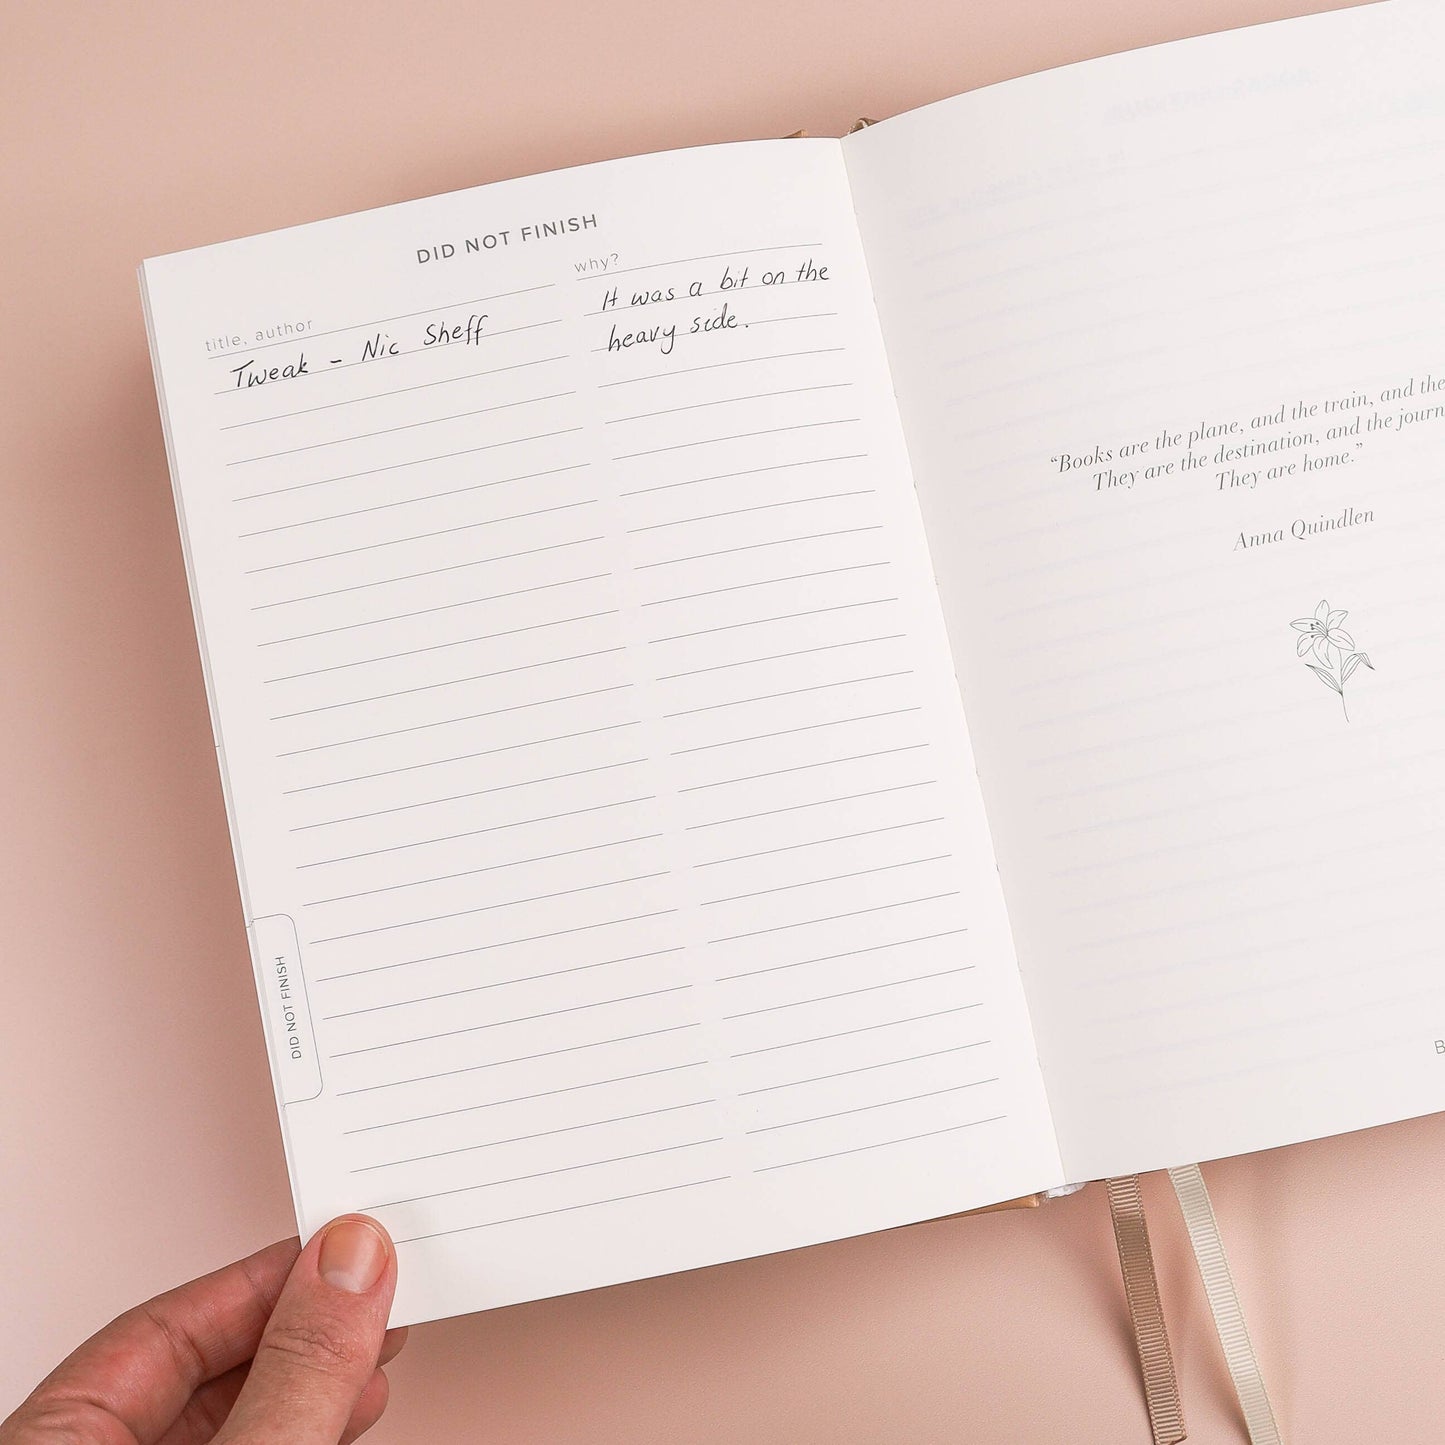 DID NOT FINISH
title, author
why?
Tweak - Nic Sheff
It was a bit on the
heavy side.
DID NOT FINISH
“Books are the plane, and the train, and the
They are the destination, and the journ
They are home.”
Anna Quindlen
B